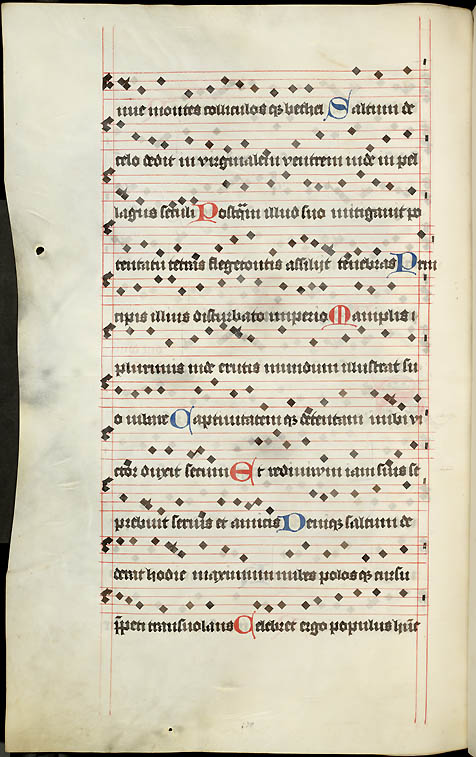 nue montes colliculos q̄ bethel Saltum de
celo dedit in virginalem ventrem inde in pel
lagus seculi Postq̄m illud suo mitigauit po
tentatu tetras flegetontis assiliit tenebras Prin
cipis illius disturbato imperio Maniplis i
plurimis inde erutis mundum illustrat su
o iubare Captiuitatem q̄ detentam inibi vi
ctor duxit secum Et rediuiuum iam suis se
prebuit seruis et amicis Deniq; saltum de
derat hodie maximum nubes polos q̄ cursu
p̄peti transuolans Celebret ergo populus hunc